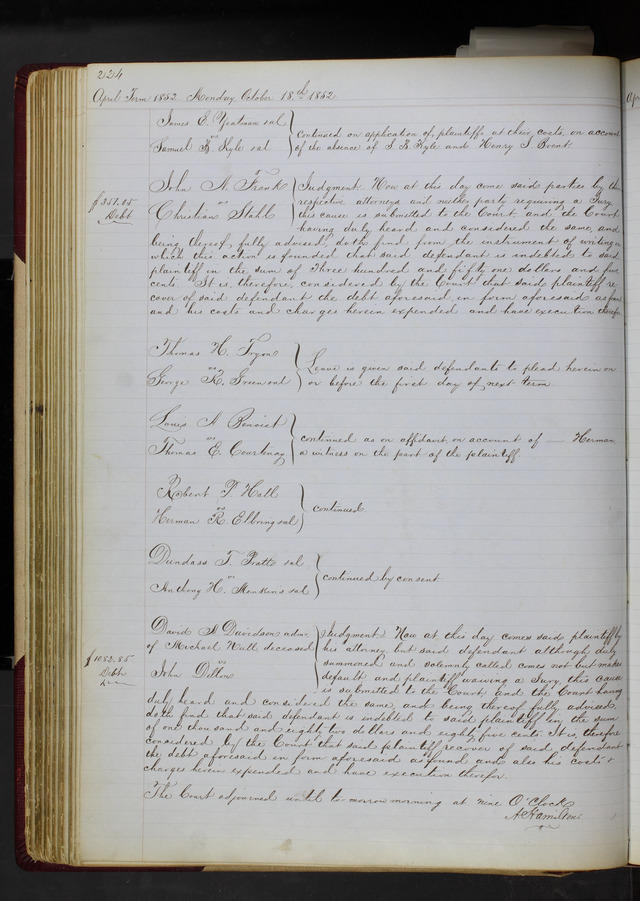 224
April Term 1852 Monday October 18th 1852
James E. Yeatman et al
vs
Samuel B. Kyle et al
continued on application of plaintiffs at their costs, on account
of the absence of S B Kyle and Henry J. Brent
$351.05
Debt
John A. Frank
vs
Christian Stahl
Judgment. Now at this day come said parties by their
respective attorneys and neither party requiring a Jury
this cause is submitted to the Court and the Court
having duly heard and considered the same, and
being thereof fully advised, doth find from the instrument of writing on
which this action is founded that said defendant is indebted to said
plaintiff in the sum of Three hundred and fifty one dollars and five
cents. It is, therefore, considered by the Court that said plaintiff re
cover of said defendant the debt aforesaid in form aforesaid as found
and his costs and charges herein expended and have execution therefor
Thomas H.
vs
George R. Green et al
Leave is given said defendants to plead herein on
or before the first day of next term.
Louis A Benoist
vs
Thomas E. Courtenay
continued as on affidavit on account of —— Herman
a witness on the part of the plaintiff.
Robert P Hall
vs
Herman R. Ebbring et al
continued
Dundass T. Pratte et al
vs
Anthony H. et al
continued by consent
$1082.85
Debt
David S Davidson admr
of Michael Wall deceased
vs
John
Judgment. Now at this day comes said plaintiff by
his attorney but said defendant although duly
summoned and solemnly called comes not but makes
default and plaintiff waiving a Jury, this cause
is submitted to the Court and the Court having
duly heard and considered the same, and being thereof fully advised
doth find that said defendant is indebted to said plaintiff in the sum
of one thousand and eighty two dollars and eighty five cents. It is, therefore
considered by the Court that said plaintiff recover of said defendant
the debt aforesaid in form aforesaid as found and also his costs &
charges herein expended and have execution therefor.
The Court adjourned until to-morrow morning at nine O'Clock
A. Hamilton